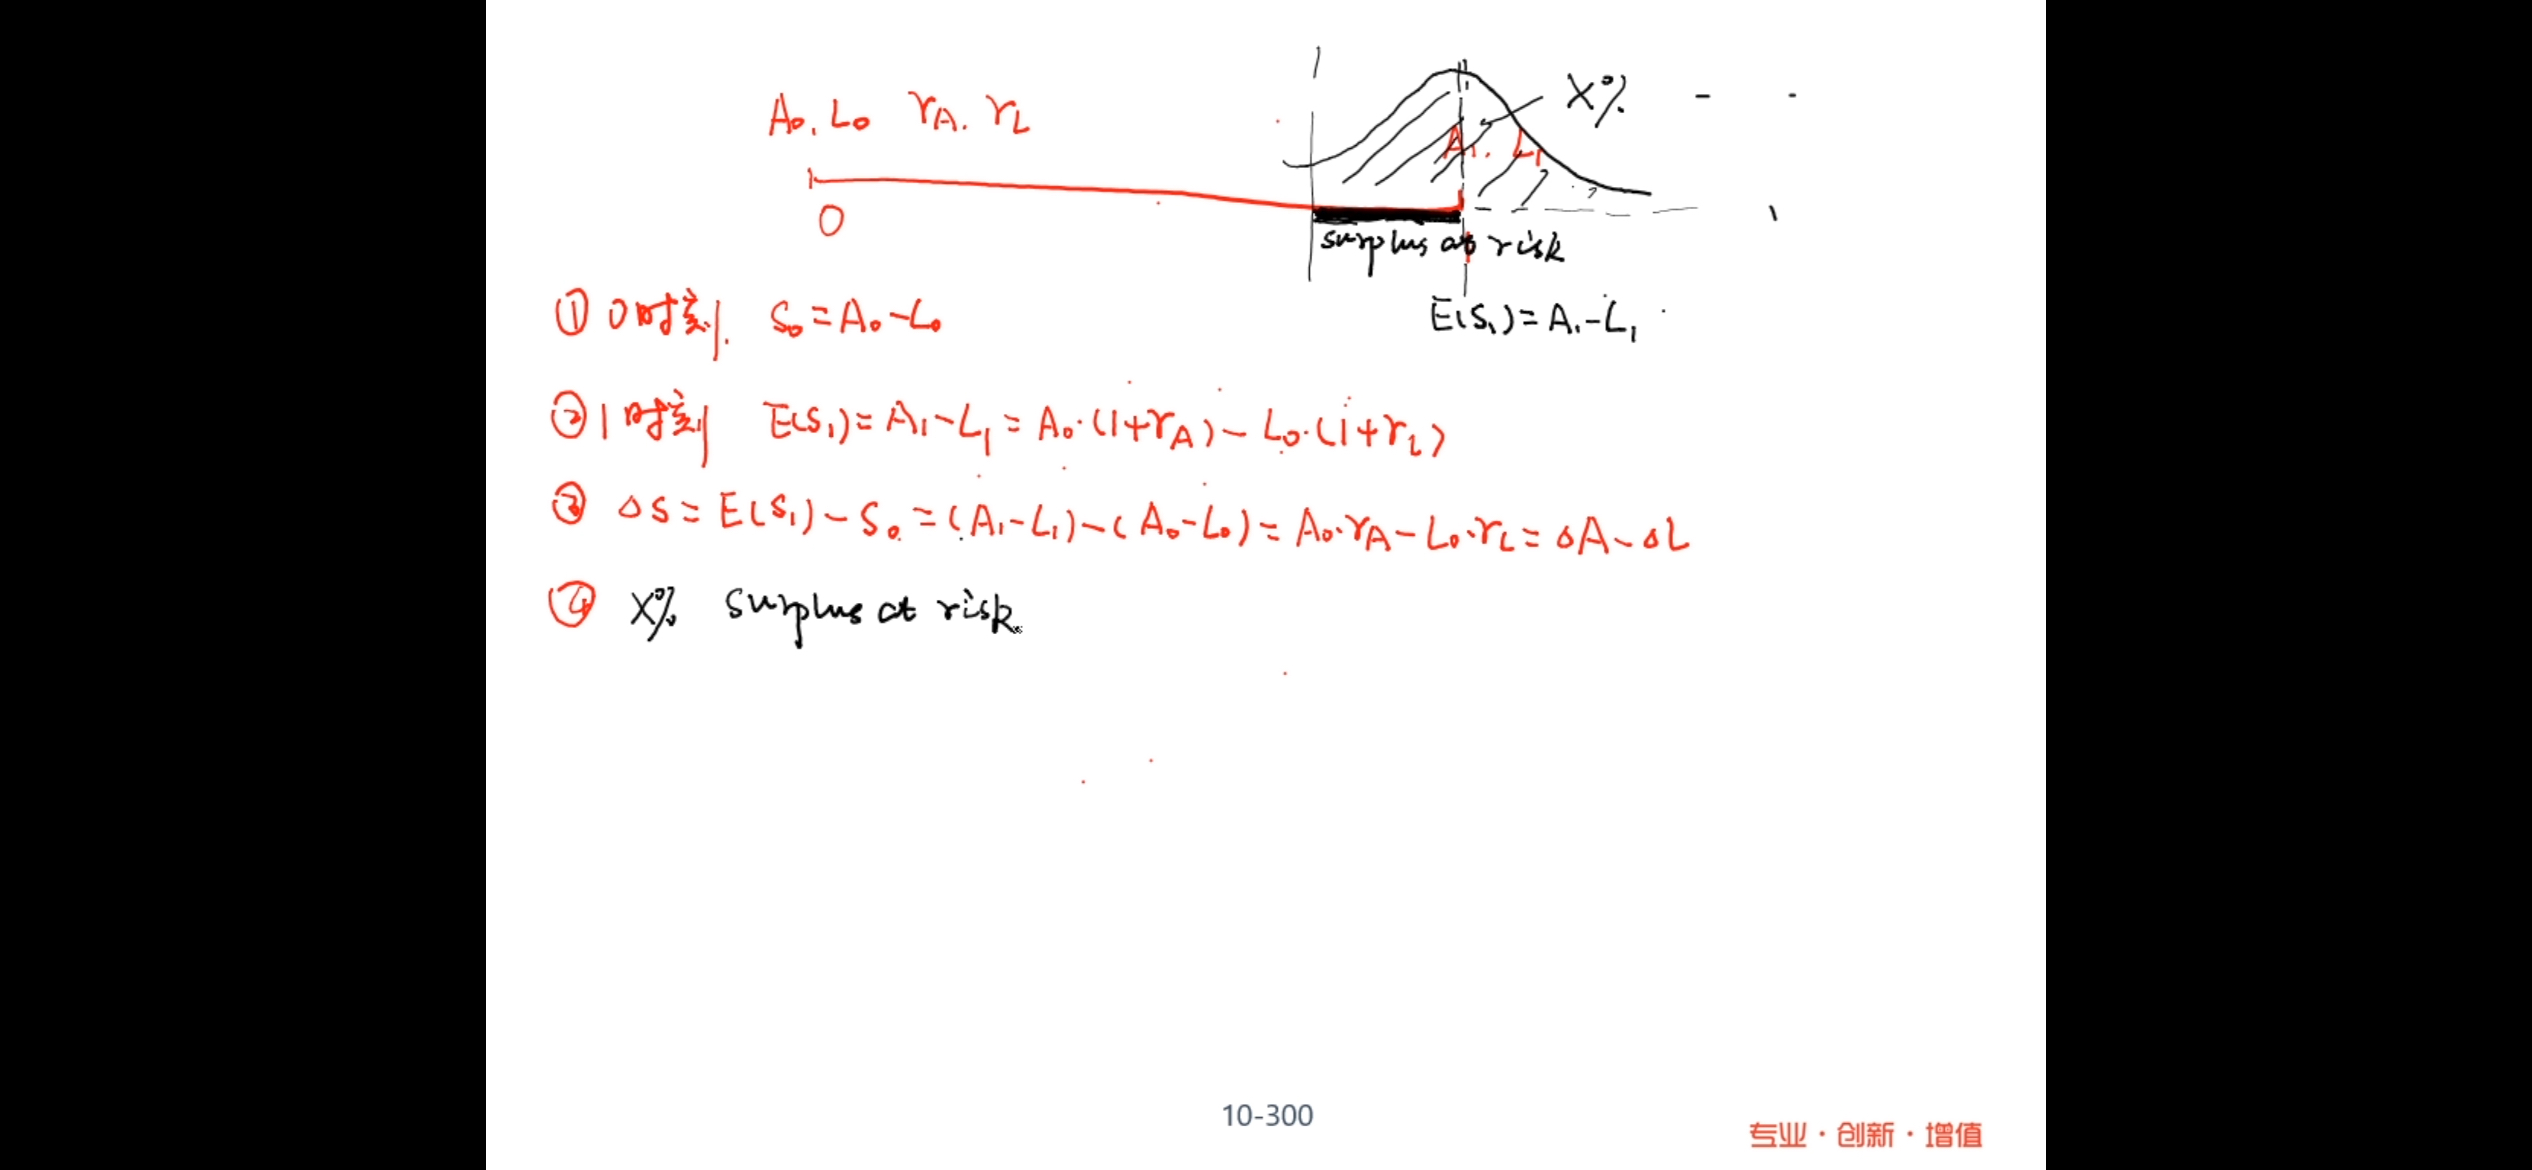 A₀, L₀ r_A, r_L
X%
A₁, L₁
0
surplus at risk
E(S₁)=A₁-L₁
① 0时刻. S₀=A₀-L₀
② 1时刻 E(S₁)=A₁-L₁=A₀·(1+r_A)-L₀·(1+r_L)
③ △S=E(S₁)-S₀=(A₁-L₁)-(A₀-L₀)=A₀·r_A-L₀·r_L=△A-△L
④ X% surplus at risk.
10-300
专业·创新·增值